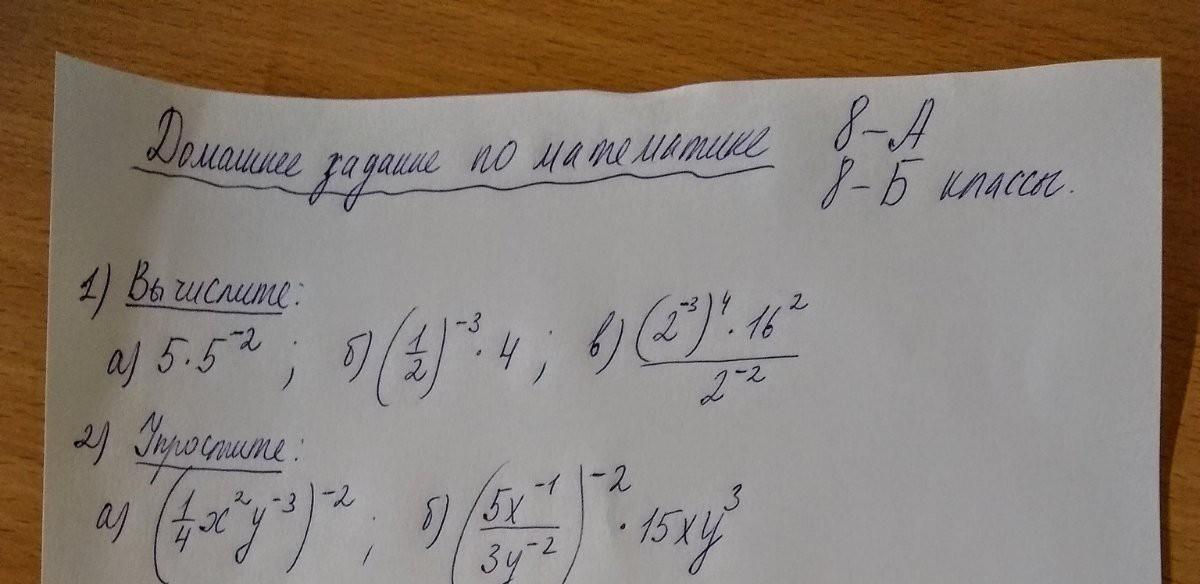 Домашнее задание по математике 8-А
8-Б классы.
1) Вычислите:
а) 5·5⁻² ; б) (1/2)⁻³ · 4 ; в) ((2⁻³)⁴ · 16²)/(2⁻²)
2) Упростите:
а) (1/4 x²y⁻³)⁻² ; б) (5x⁻¹/3y⁻²)⁻² · 15xy³